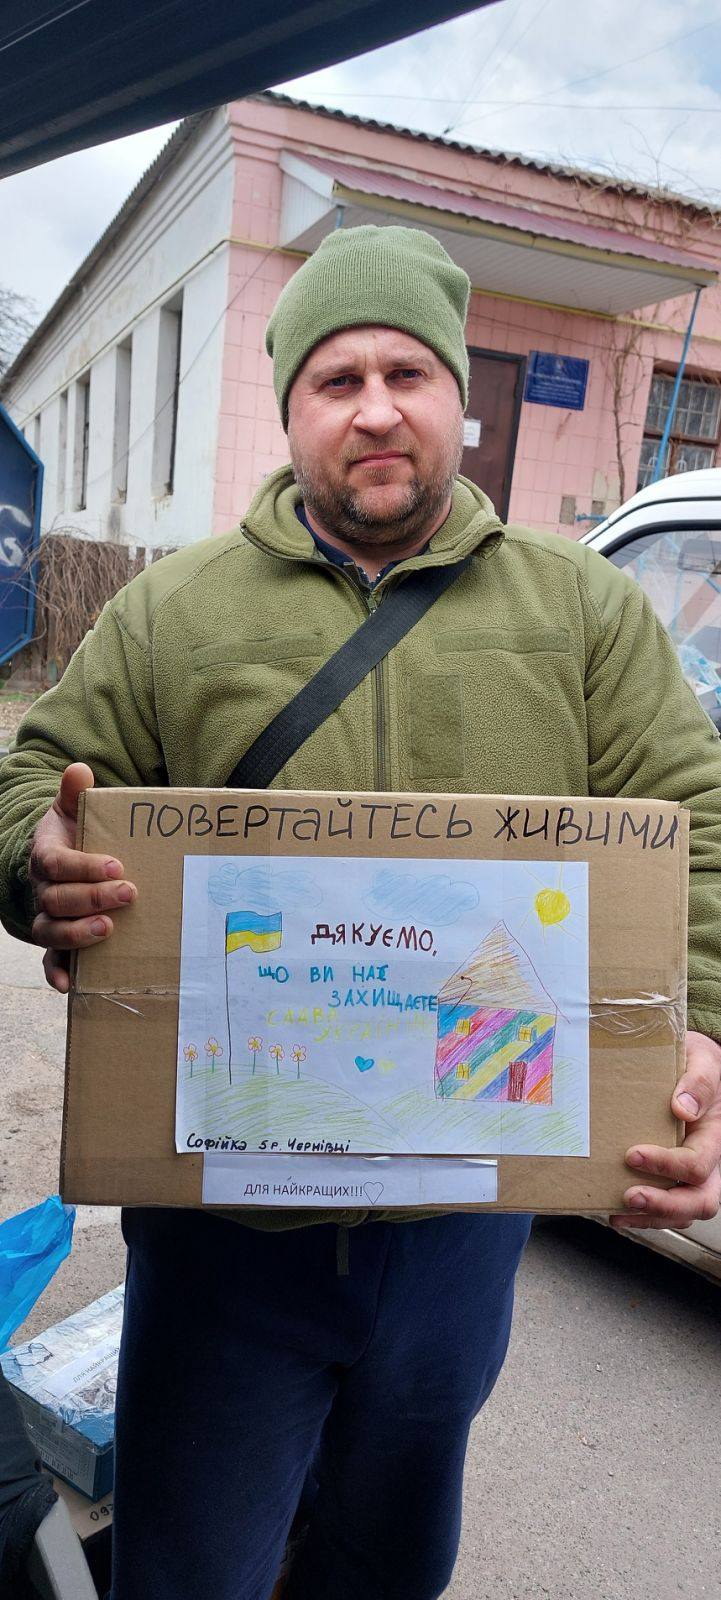 ПОВЕРТАЙТЕСЬ ЖИВИМИ
ДЯКУЄМО,
ЩО ВИ НАС
ЗАХИЩАЄТЕ
СЛАВА
УКРАЇНІ
Софійка 5р. Чернівці
ДЛЯ НАЙКРАЩИХ!!!♡
ДЛЯ НАЙКРАЩИХ